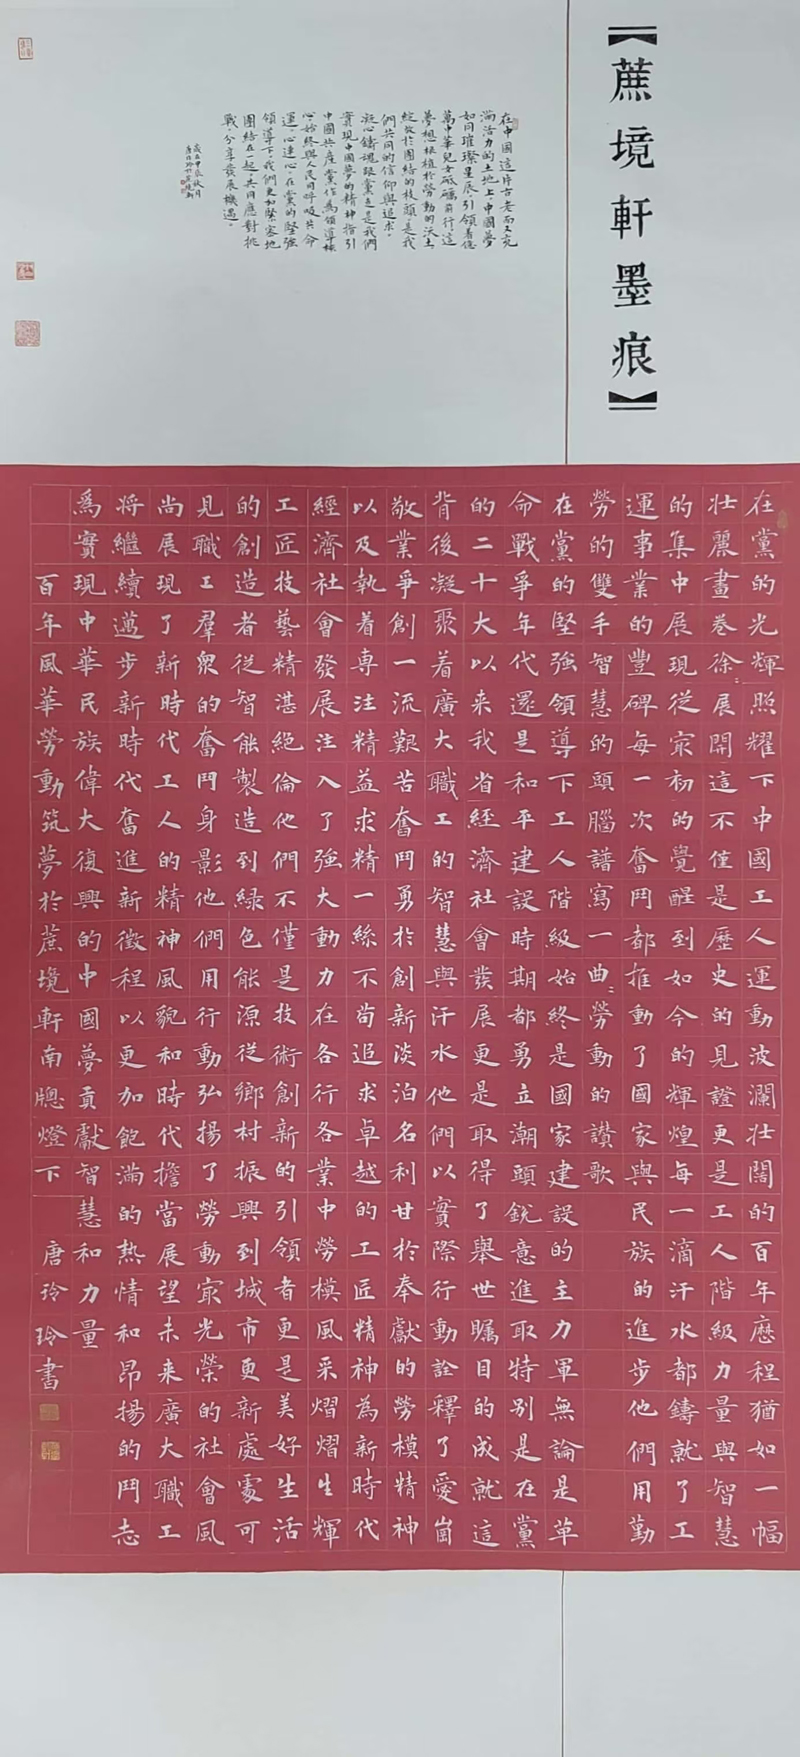 【蔗境軒墨痕】
在中國這片古老而又充
滿活力的土地上中國夢
如同璀璨星辰引領着億
萬中華兒女砥礪前行這
夢想根植於勞動的沃土
綻放於團結的枝頭，是我
們共同的信仰與追求。
凝心鑄魂跟黨走是我們
實現中國夢的精神指引
中國共產黨作為領導核
心，始終與人民同呼吸共命
運，心連心，在黨的堅強
領導下，我們更加緊密地
團結在一起，共同應對挑
戰，分享發展機遇。
歲在甲辰秋月
唐玲玲於蔗境軒
在黨的光輝照耀下中國工人運動波瀾壯闊的百年歷程猶如一幅
壯麗畫卷徐：展開這不僅是歷史的見證更是工人階級力量與智慧
的集中展現從最初的覺醒到如今的輝煌每一滴汗水都鑄就了工
運事業的豐碑每一次奮鬥都推動了國家與民族的進步他們用勤
勞的雙手智慧的頭腦譜寫一曲：勞動的讚歌
在黨的堅強領導下工人階級始終是國家建設的主力軍無論是革
命戰爭年代還是和平建設時期都勇立潮頭銳意進取特別是在黨
的二十大以來我省經濟社會發展更是取得了舉世矚目的成就這
背後凝聚着廣大職工的智慧與汗水他們以實際行動詮釋了愛崗
敬業爭創一流艱苦奮鬥勇於創新淡泊名利甘於奉獻的勞模精神
以及執着專注精益求精一絲不苟追求卓越的工匠精神為新時代
經濟社會發展注入了強大動力在各行各業中勞模風采熠熠生輝
工匠技藝精湛絕倫他們不僅是技術創新的引領者更是美好生活
的創造者從智能製造到綠色能源從鄉村振興到城市更新處處可
見職工群眾的奮鬥身影他們用行動弘揚了勞動最光榮的社會風
尚展現了新時代工人的精神風貌和時代擔當展望未來廣大職工
將繼續邁步新時代奮進新徵程以更加飽滿的熱情和昂揚的鬥志
為實現中華民族偉大復興的中國夢貢獻智慧和力量
百年風華勞動筑夢於蔗境軒南牕燈下 唐玲玲書